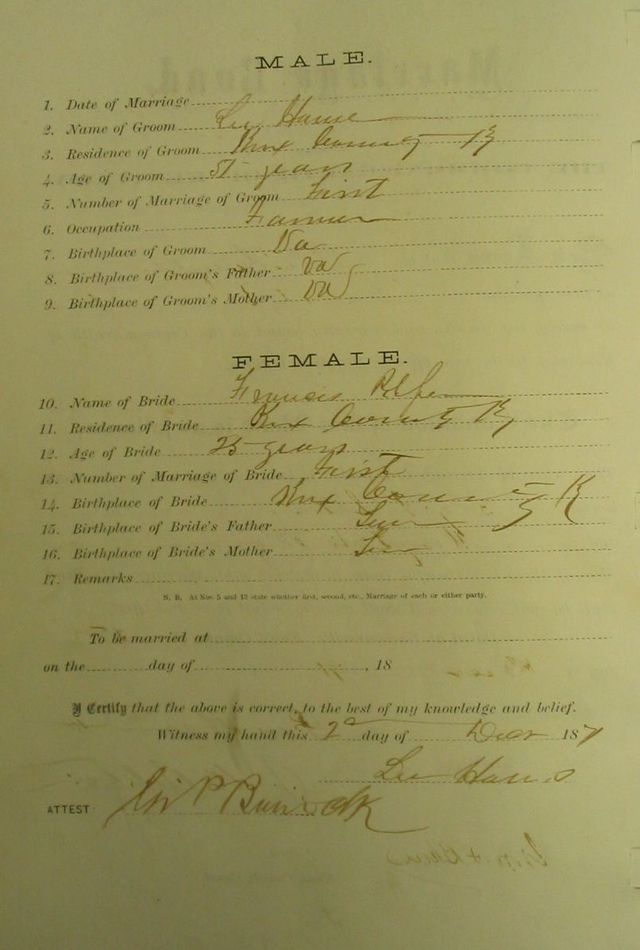 MALE.
1. Date of Marriage
2. Name of Groom Lee
3. Residence of Groom Knox County Ky
4. Age of Groom 51 years
5. Number of Marriage of Groom First
6. Occupation Farmer
7. Birthplace of Groom Va
8. Birthplace of Groom's Father Va
9. Birthplace of Groom's Mother Va
FEMALE.
10. Name of Bride Francis
11. Residence of Bride Knox County Ky
12. Age of Bride 25 years
13. Number of Marriage of Bride First
14. Birthplace of Bride Knox County K
15. Birthplace of Bride's Father
16. Birthplace of Bride's Mother
17. Remarks
N. B. At Nos. 5 and 13 state whether first, second, etc., Marriage of each or either party.
To be married at
on the day of , 18
I Certify that the above is correct, to the best of my knowledge and belief.
Witness my hand this 2d day of 187
Lee
ATTEST: